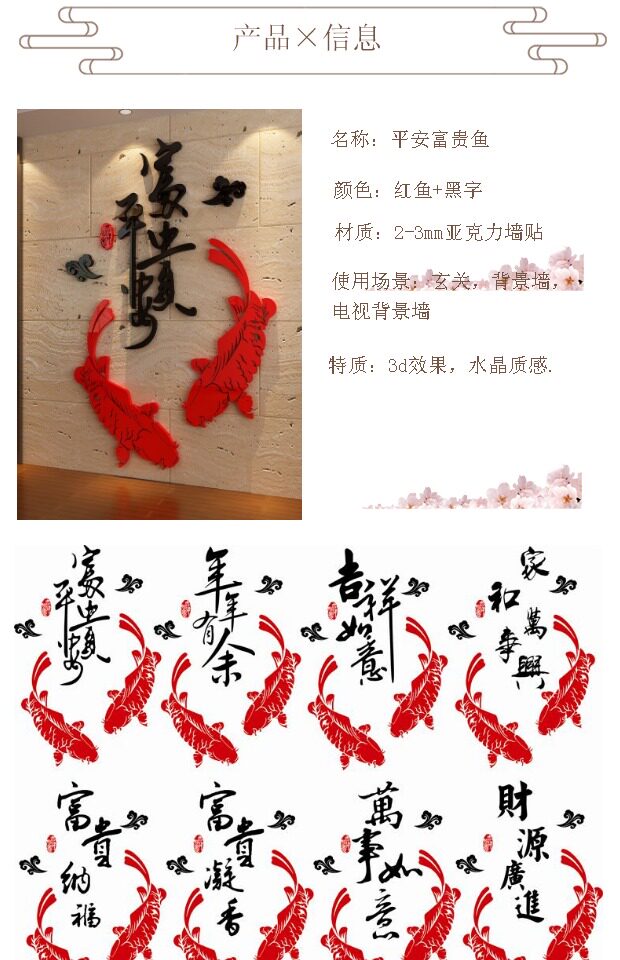 产品×信息
富贵
平安
名称：平安富贵鱼
颜色：红鱼+黑字
材质：2-3mm亚克力墙贴
使用场景：玄关，背景墙，
电视背景墙
特质：3d效果，水晶质感.
富贵
平安
年年有余
吉祥如意
家和萬事興
富貴納福
富貴凝香
萬事如意
財源廣進